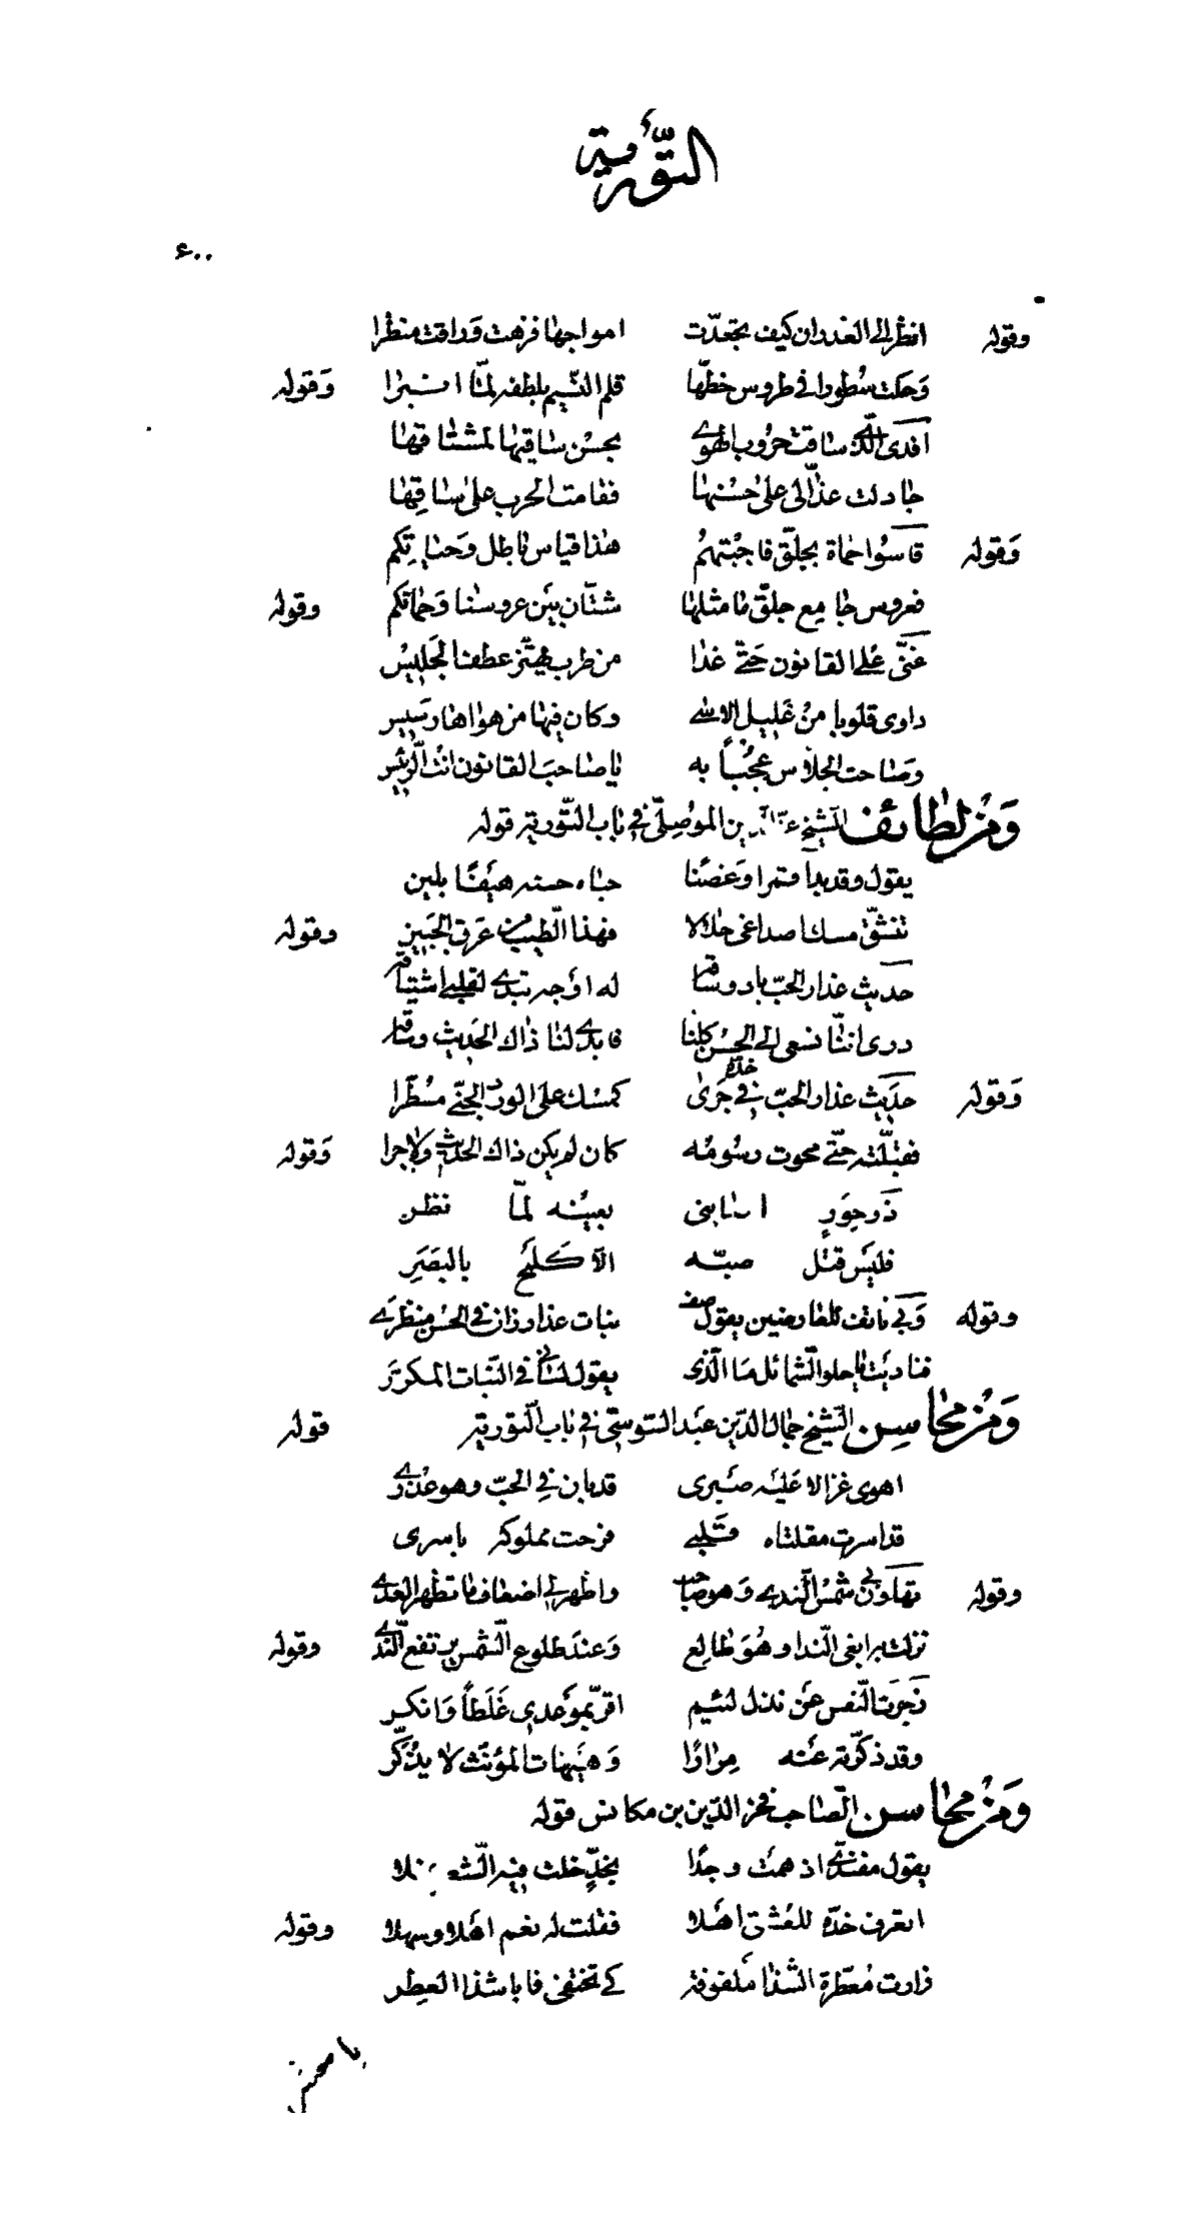 التّورية
٤٠٠
وقوله انظر الى الغدران كيف تجعّدت امواجها فزهت وراقت منظرا
وحكت سُطورا في طروس خطّها قلم النّسيم بلطفه لمّا انبرا وقوله
افدى الّتى ساقت حروب الهوى بحسن ساقيها لمشتاقها
جادلت عذّالى على حسنها فقامت الحرب على ساقها
وقوله قاسُوا حماة بجلّق فاجبتهم هذا قياس باطل وحياتكم
فعروس جامع جلّق ما مثلها شتّان بين عروسنا وحماتكم وقوله
غنّى على القانون حتّى غدا من طرب يهتز عطف الجليس
داوى قلوبا من غليل الاسى وكان فيها من هواها رسيس
وصاحت الجلاس عجُباً به يا صاحب القانون انت الرئيس
ومن لطائف الشيخ عزّ الدين الموصلّى في باب التّورية قوله
يقول وقد بدا قمرا وغصنا حباه حسنه هيفًا بلين
تنشّق مسك اصداغى حلالا فهذا الطّيب من عرق الجبين وقوله
حديث عذار الحبّ باد وساقه له اوجه تبدى لقلبي اشتياقه
درى انّنا نسعى الى الحسن كلنا فابدى لنا ذاك الحديث وساقه
وقوله حديث عذار الحبّ في خدّه جرى كمسك على الورد الجنّي مسُطّرا
فقبّلته حتّى محوت رسُومُه كان لم يكن ذاك الحديث ولا جرا وقوله
ذو حور اصابنى بعينه لمّا نظر
فليس قتل صبّه الّا كلمح بالبصر
وقوله وفي نابت للعارضين يقول صف نبات عذار زان في الحسن منظرى
فناديت يا حلو الشمائل ما الّذى يقول لسانى في النّبات المكرّر
ومن محاسن الشيخ جمال الدّين عبد السّوسى في باب التّورية قوله
اهوى غزالا عليه صبرى قد بان في الحبّ وهو عُذرى
قد اسرت مقلتاه قلبي فرحت مملوكه باسرى
وقوله تهاون بي شمس الّندى وهو صاحب واظهر لي اضعاف ما تظهر العدى
نزلت به ابغى الّندا وهُو طالع وعند طلوع الشّمس يرتفع الّندى وقوله
زجرت النّفس عن نذل لئيم اقرّ بموعدى غلطاً وانكر
وقد ذكّرته عنه مرارًا وهيهات المؤنّث لا يذكّر
ومن محاسن الصّاحب فخر الدّين بن مكانس قوله
يقول مفنّدى اذ همت وجدًا بخدٍّ خلت فيه الشّعر نملا
اتعرف خدّه للعشق اهلا فقلت له نعم اهلا وسهلا وقوله
زارت مُعطّرة الشّذا ملفوفة كي تختفى فابا شذا العطر